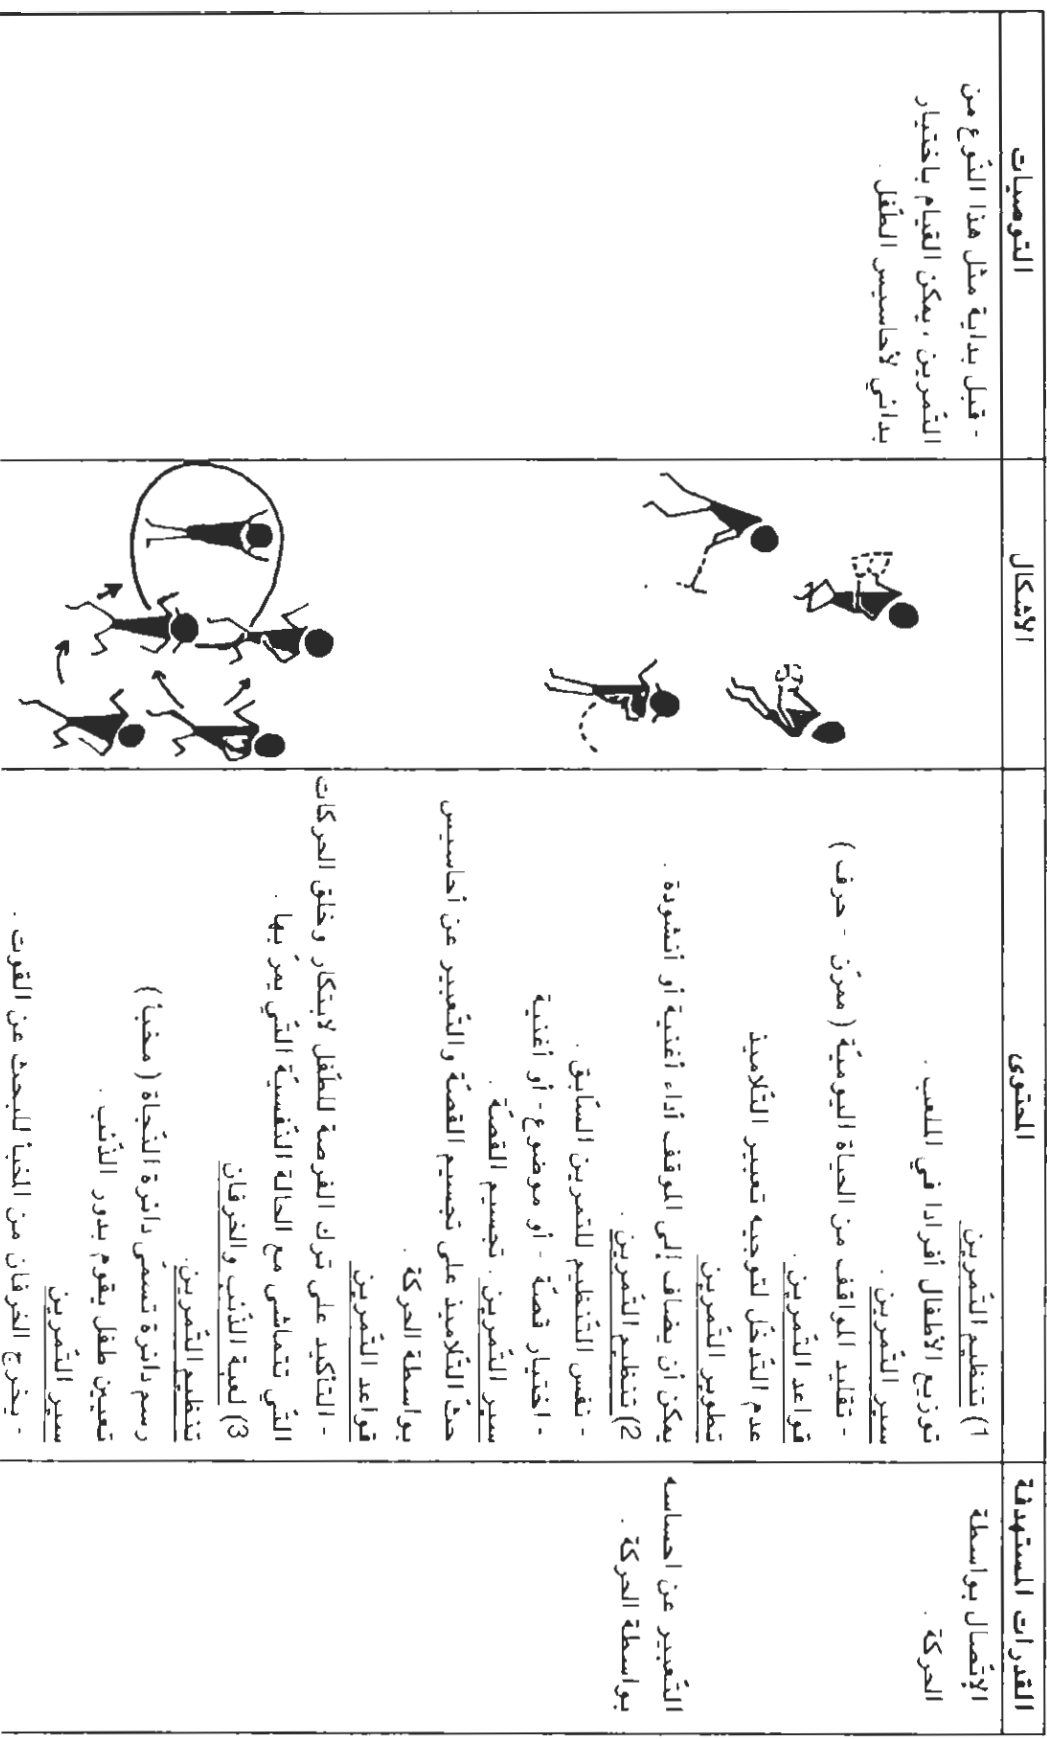 القدرات المستهدفة
الإتّصال بواسطة
الحركة .
التّعبير عن احساسه
بواسطة الحركة .
المحتوى
1) تنظيم التّمرين
توزيع الأطفال أفرادا في الملعب .
سير التّمرين .
- تقليد المواقف من الحياة اليوميّة ( ممرّن - حرف )
قواعد التّمرين .
عدم التّدخّل لتوجيه تعبير التّلاميذ
تطوير التّمرين
يمكن أن يضاف إلى الموقف أداء أغنية أو أنشودة .
2) تنظيم التّمرين .
- نفس التّنظيم للتمرين السّابق .
- اختيار قصّة - أو موضوع - أو أغنية
سير التّمرين . تجسيم القصّة .
حثّ التّلاميذ على تجسيم القصّة والتّعبير عن أحاسيس
بواسطة الحركة .
قواعد التّمرين
- التأكيد على ترك الفرصة للطّفل لابتكار وخلق الحركات
التّي تتماشى مع الحالة النّفسيّة التّي يمرّ بها .
3) لعبة الذّئب والخرفان
تنظيم التّمرين.
رسم دائرة تسمّى دائرة النّجاة ( مخبأ )
تعيين طفل يقوم بدور الذّئب .
سير التّمرين
- يخرج الخرفان من المخبأ للبحث عن القوت .
الأشكال
التّوصيات
- قبل بداية مثل هذا النّوع من
التّمرين ، يمكن القيام باختبار
بدائي لأحاسيس الطّفل .